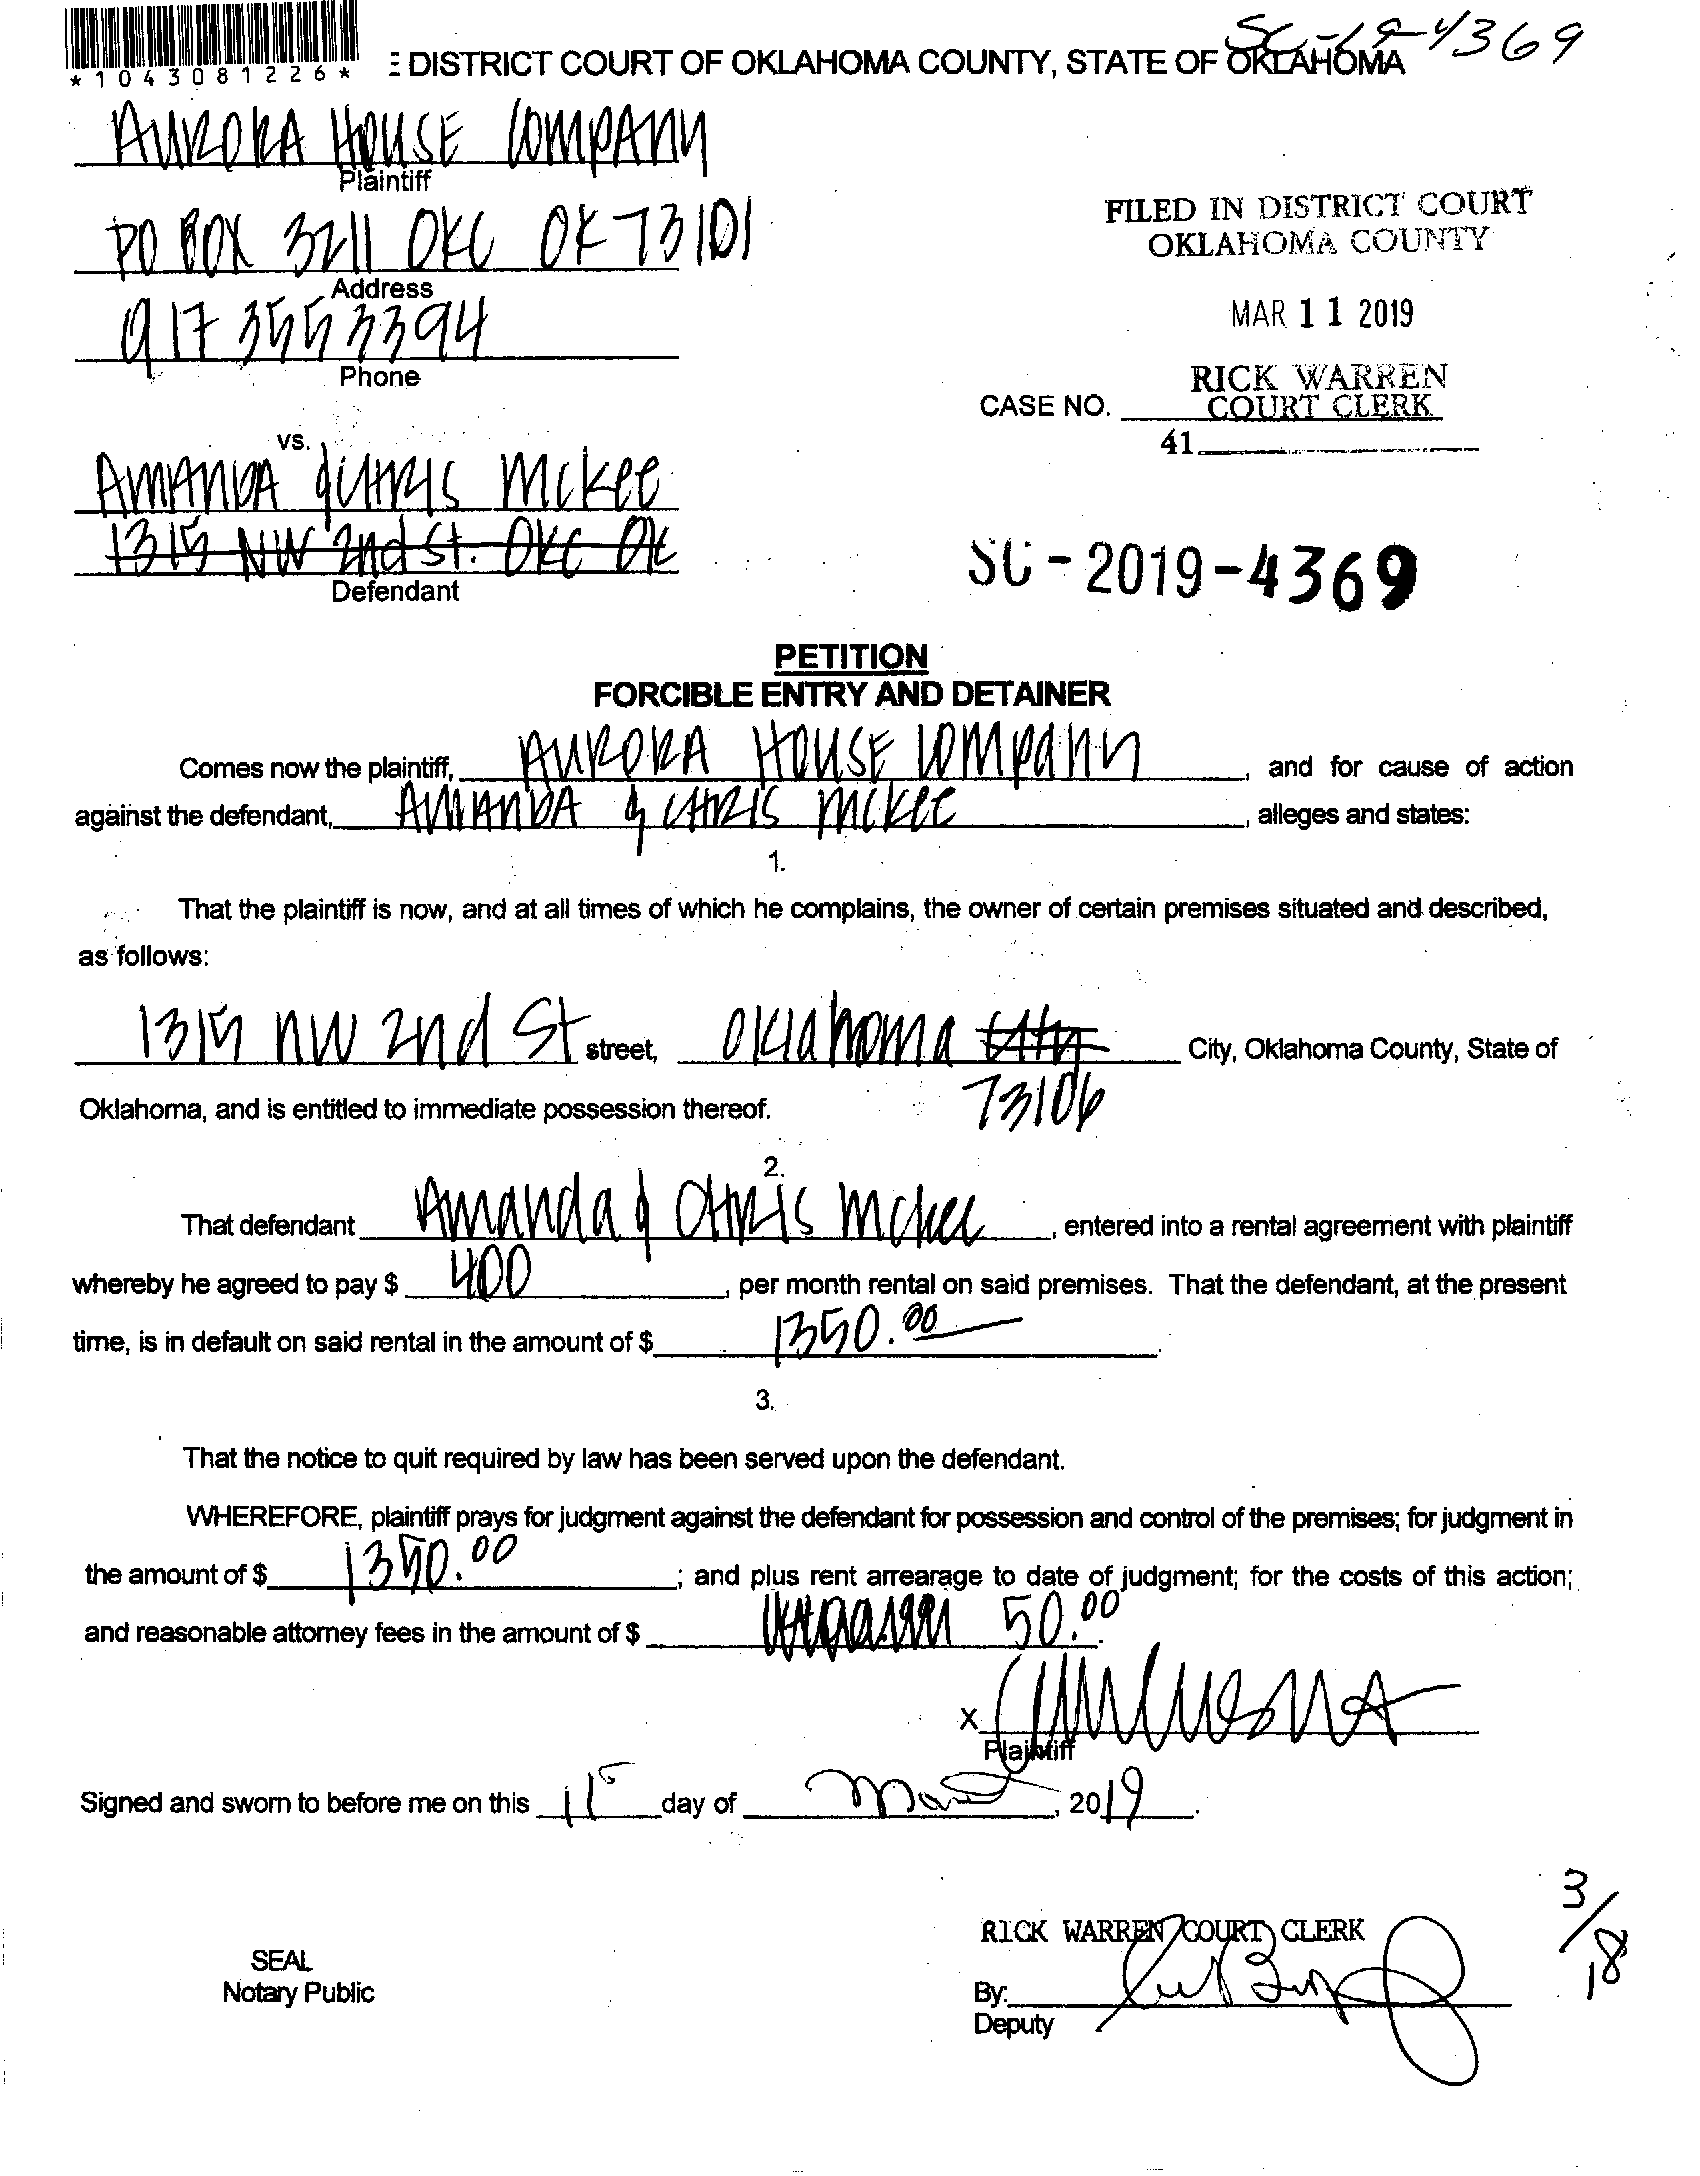 SC-19-4369
*1043081226*
E DISTRICT COURT OF OKLAHOMA COUNTY, STATE OF OKLAHOMA
AURORA HOUSE COMPANY
Plaintiff
PO BOX 3211 OKC OK 73101
Address
917 355 3394
Phone
FILED IN DISTRICT COURT
OKLAHOMA COUNTY
MAR 11 2019
RICK WARREN
CASE NO. COURT CLERK
41
vs.
AMANDA & CHRIS MCKEE
1315 NW 2nd St. OKC OK
Defendant
SC-2019-4369
PETITION
FORCIBLE ENTRY AND DETAINER
Comes now the plaintiff, AURORA HOUSE COMPANY, and for cause of action
against the defendant, AMANDA & CHRIS MCKEE, alleges and states:
1.
That the plaintiff is now, and at all times of which he complains, the owner of certain premises situated and described,
as follows:
1315 NW 2nd St street, Oklahoma City City, Oklahoma County, State of
Oklahoma, and is entitled to immediate possession thereof. 73106
2.
That defendant Amanda & Chris Mckee, entered into a rental agreement with plaintiff
whereby he agreed to pay $ 400, per month rental on said premises. That the defendant, at the present
time, is in default on said rental in the amount of $ 1350.00.
3.
That the notice to quit required by law has been served upon the defendant.
WHEREFORE, plaintiff prays for judgment against the defendant for possession and control of the premises; for judgment in
the amount of $ 1350.00; and plus rent arrearage to date of judgment; for the costs of this action;
and reasonable attorney fees in the amount of $ 50.00.
X
Plaintiff
Signed and sworn to before me on this 11 day of March, 2019.
3/18
RICK WARREN COURT CLERK
SEAL
Notary Public
By:
Deputy